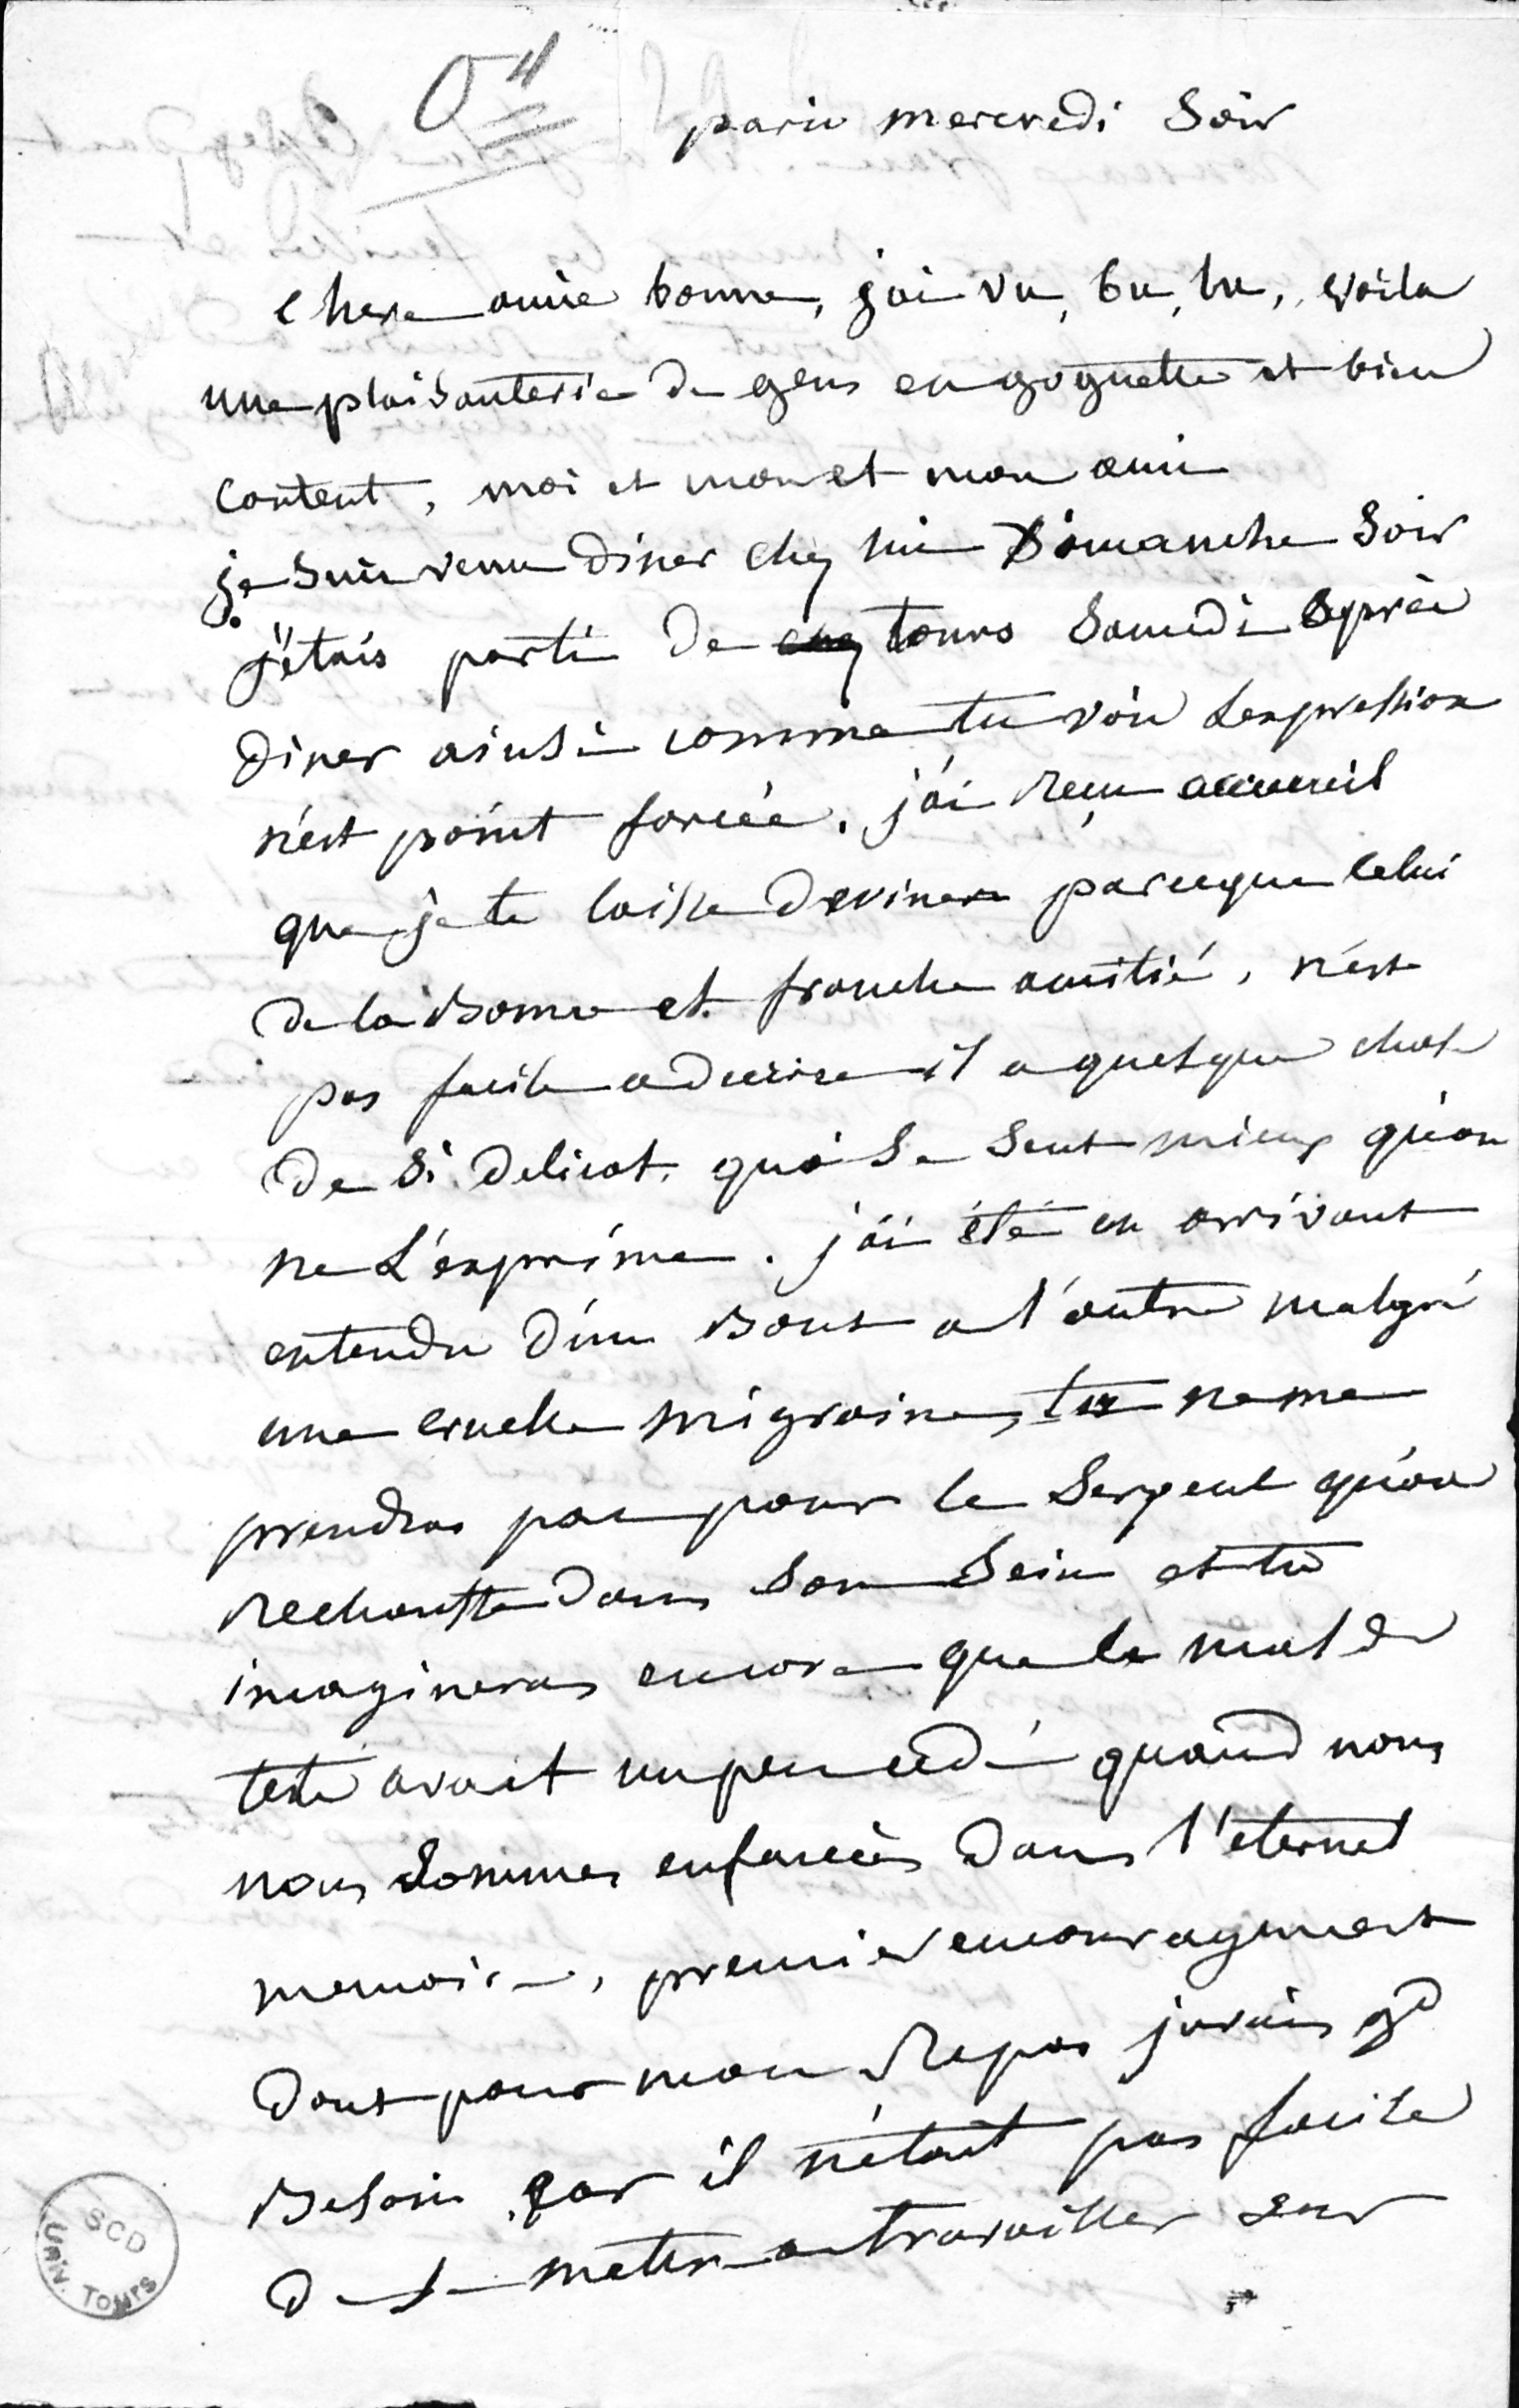 paris mercredi Soir
chere amie bonne, j'ai vu, bu, lu, voila
une plaisanterie de gens en goguette et bien
content, moi et mon et mon ami
je suis venu diner chez lui Dimanche Soir
j'étais parti de chez tours Samedi après
diner ainsi comme tu vois L'expression
n'est point forcée. j'ai reçu accueuil
que je te laisse deviner parceque celui
de la Bonne et franche amitié, n'est
pas facile a decrire il a quelque chose
de Si delicat, qui Se Sent mieux qu'on
ne L'exprime. j'ai été en arrivant
entendu d'un Bout a l'autre malgré
une cruelle migraine, tu ne me
prendras pas pour le Serpent qu'on
rechauffe dans Son Sein et tu
imagineras encore que le mal de
tete avait un peu cedé quand nous
nous Sommes enfoncés dans l'eternel
memoire, premier encouragement
dont pour mon Repos j'avais gd
Besoin car il n'était pas facile
de se mettre a travailler sur
SCD
UNIV. TOURS